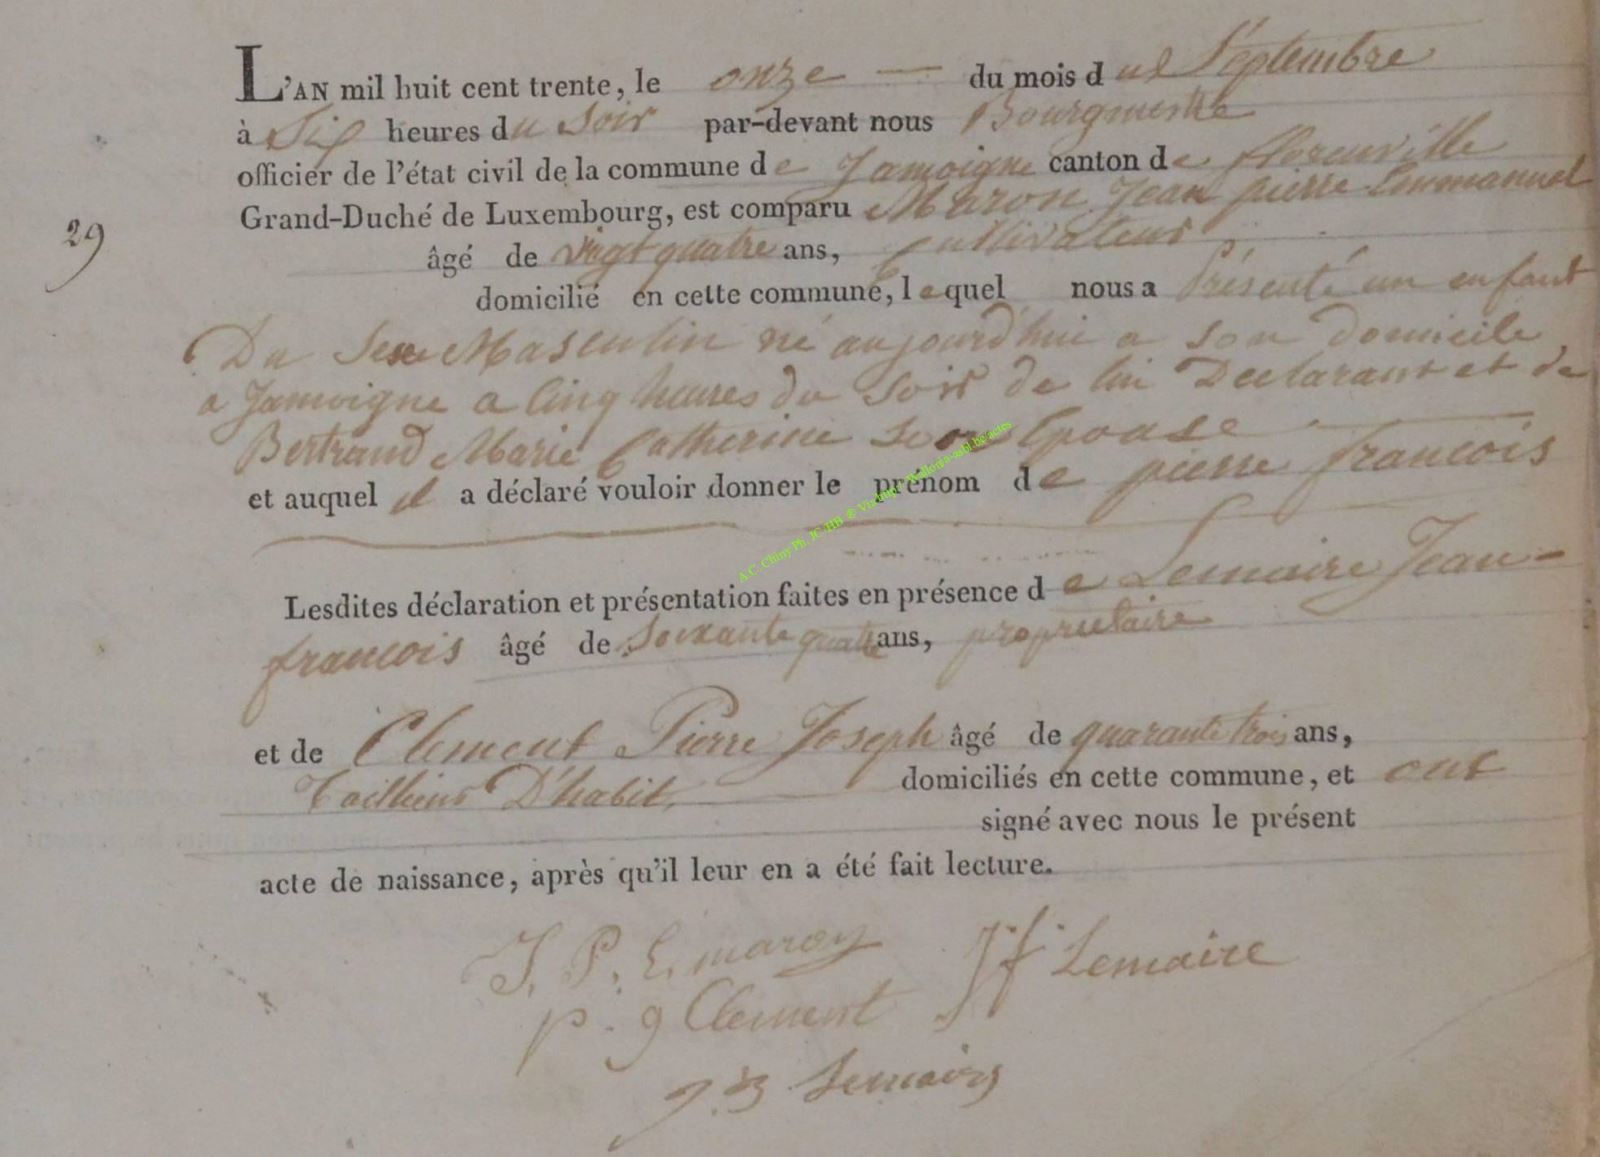 L'AN mil huit cent trente, le onze — du mois de Septembre
à Six heures du Soir par-devant nous Bourgmestre
officier de l'état civil de la commune de Jamoigne canton de florenville
Grand-Duché de Luxembourg, est comparu Maron Jean pierre Emmanuel
29
âgé de vingt quatre ans, Cultivateur
domicilié en cette commune, lequel nous a Présenté un enfant
Du Sexe Masculin né aujourd'hui a son domicile
a Jamoigne a Cinq heures du Soir de lui Declarant et de
Bertrand Marie Catherine son Epouse
et auquel il a déclaré vouloir donner le prénom de pierre francois
Lesdites déclaration et présentation faites en présence de Lemaire Jean-
francois âgé de Soixante quatre ans, proprietaire
et de Clement Pierre Joseph âgé de quarante trois ans,
Tailleur D'habit, domiciliés en cette commune, et ont
signé avec nous le présent
acte de naissance, après qu'il leur en a été fait lecture.
J. P. E. maron Jf Lemaire
p. j Clement
J. B Lemaire
A.C. Chiny Ph. JC-HB ©